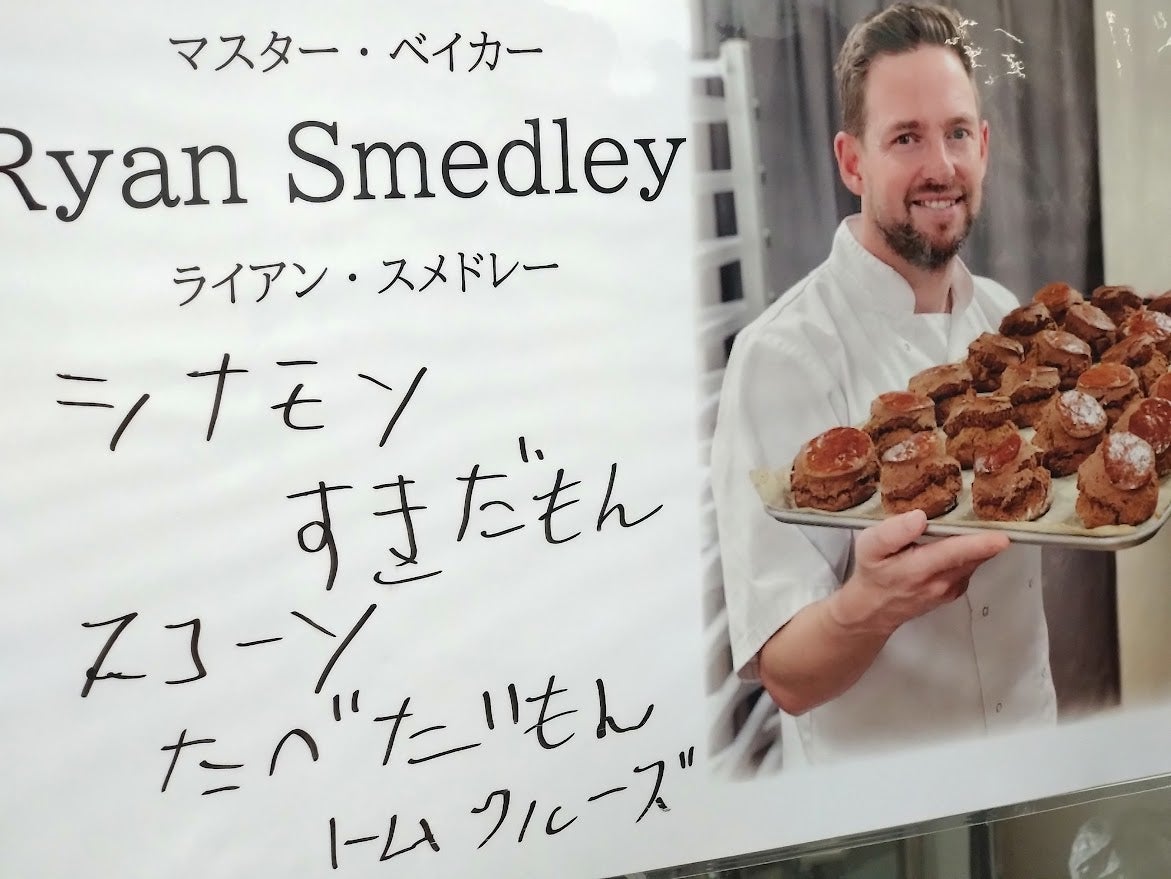 マスター・ベイカー
Ryan Smedley
ライアン・スメドレー
シナモン
すきだもん
スコーン
たべただもん
トムクルーズ